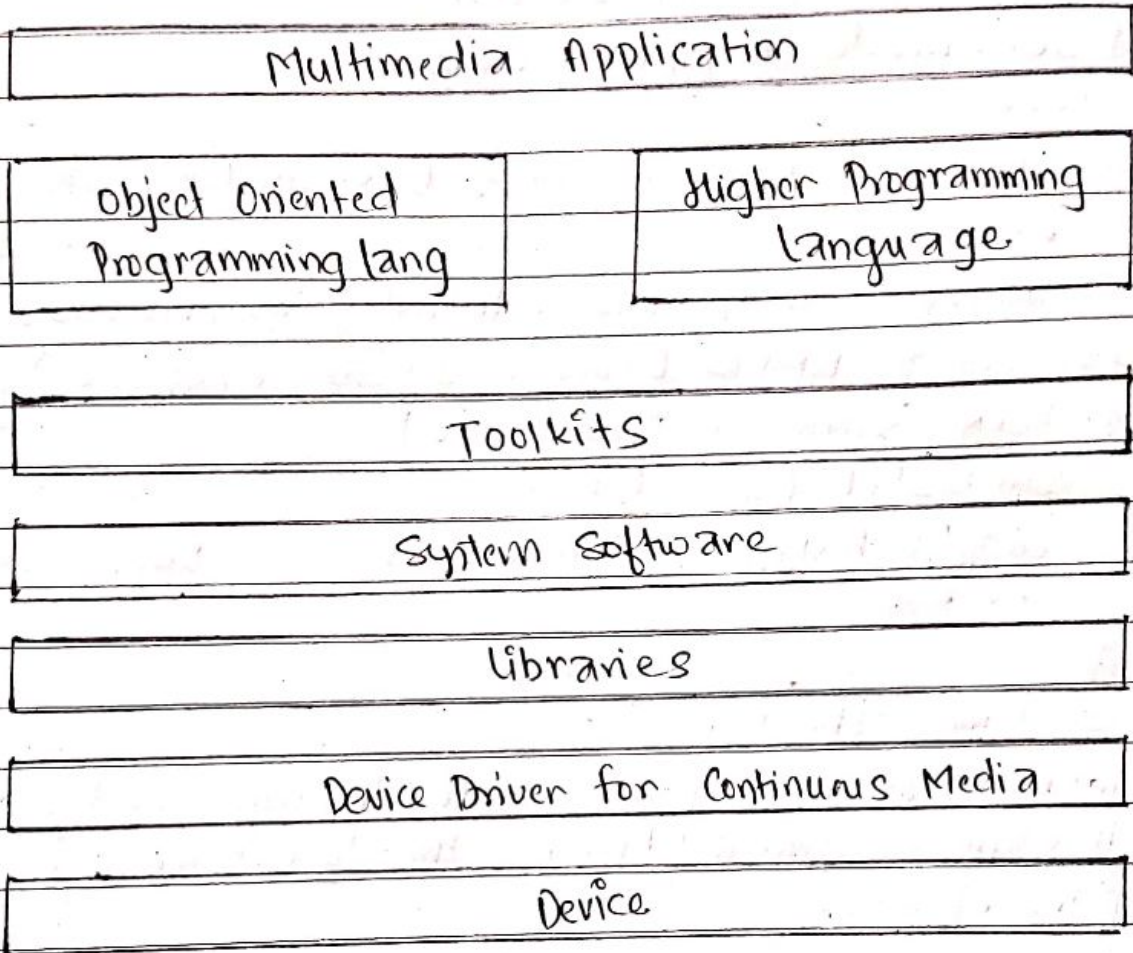 Multimedia Application
Object Oriented
Programming lang
Higher Programming
language
Toolkits
System Software
Libraries
Device Driver for Continuous Media
Device